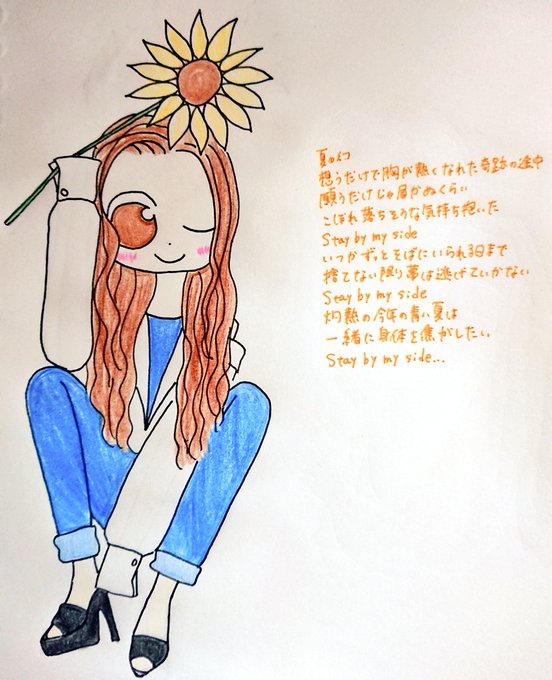 夏のメロ
想うだけで胸が熱くなれた奇跡の途中
願うだけじゃ届かぬくらい
こぼれ落ちそうな気持ち抱いた
Stay by my side
いつかずっとそばにいられる日まで
捨てない限り夢は逃げていかない
Stay by my side
灼熱の今年の青い夏は
一緒に身体を焦がしたい
Stay by my side...